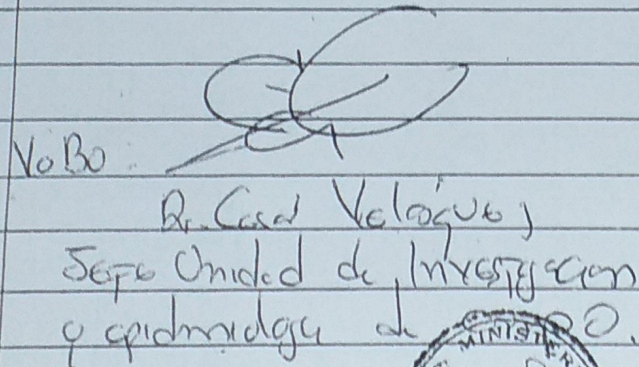 VoBo
Dr. Cesar Velázquez
Jefe Unidad de Investigacion
y epidemiologia de
MINISTER